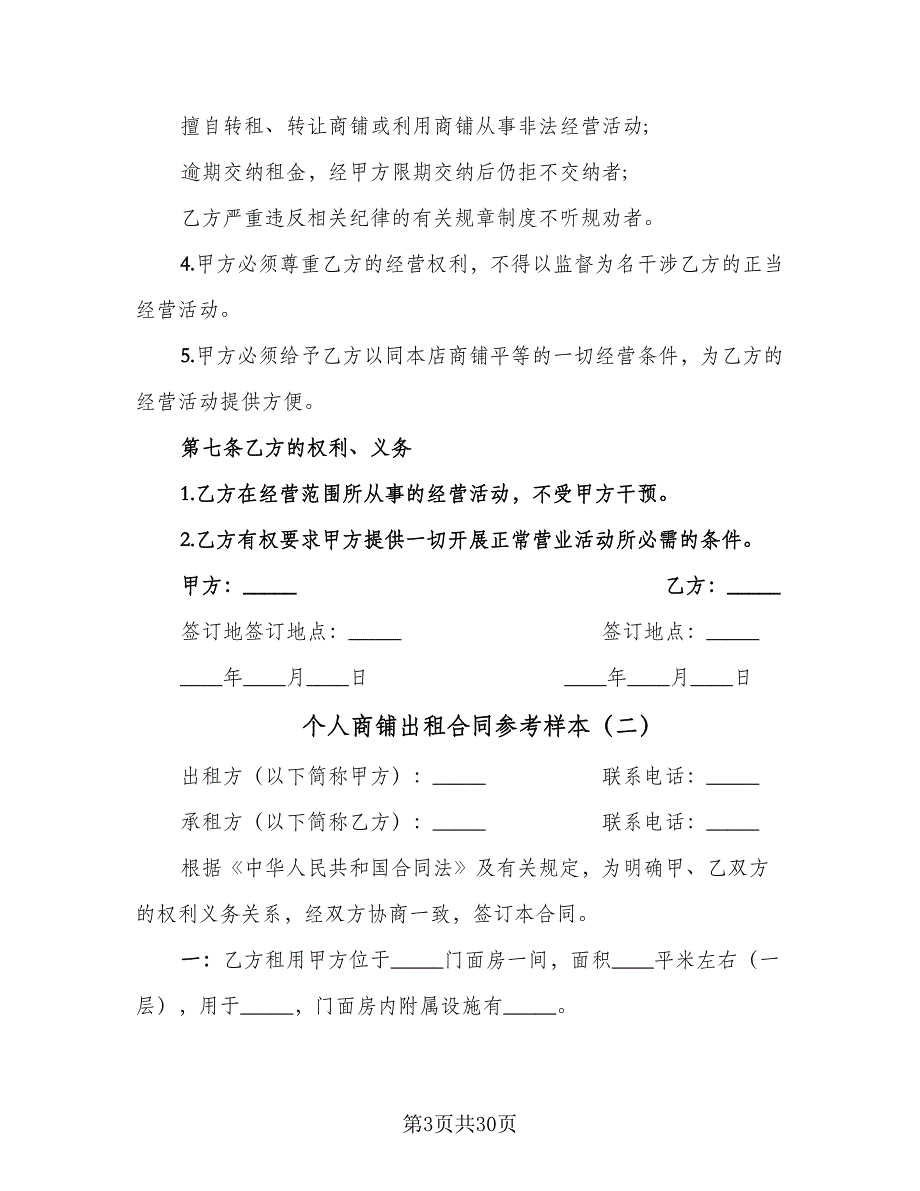 擅自转租、转让商铺或利用商铺从事非法经营活动;
逾期交纳租金，经甲方限期交纳后仍拒不交纳者;
乙方严重违反相关纪律的有关规章制度不听规劝者。
4.甲方必须尊重乙方的经营权利，不得以监督为名干涉乙方的正当
经营活动。
5.甲方必须给予乙方以同本店商铺平等的一切经营条件，为乙方的
经营活动提供方便。
第七条乙方的权利、义务
1.乙方在经营范围所从事的经营活动，不受甲方干预。
2.乙方有权要求甲方提供一切开展正常营业活动所必需的条件。
甲方：_____ 乙方：_____
签订地签订地点：_____ 签订地点：_____
____年____月____日 ____年____月____日
个人商铺出租合同参考样本（二）
出租方（以下简称甲方）：_____ 联系电话：_____
承租方（以下简称乙方）：_____ 联系电话：_____
根据《中华人民共和国合同法》及有关规定，为明确甲、乙双方
的权利义务关系，经双方协商一致，签订本合同。
一：乙方租用甲方位于_____门面房一间，面积____平米左右（一
层），用于_____，门面房内附属设施有_____。
第3页共30页